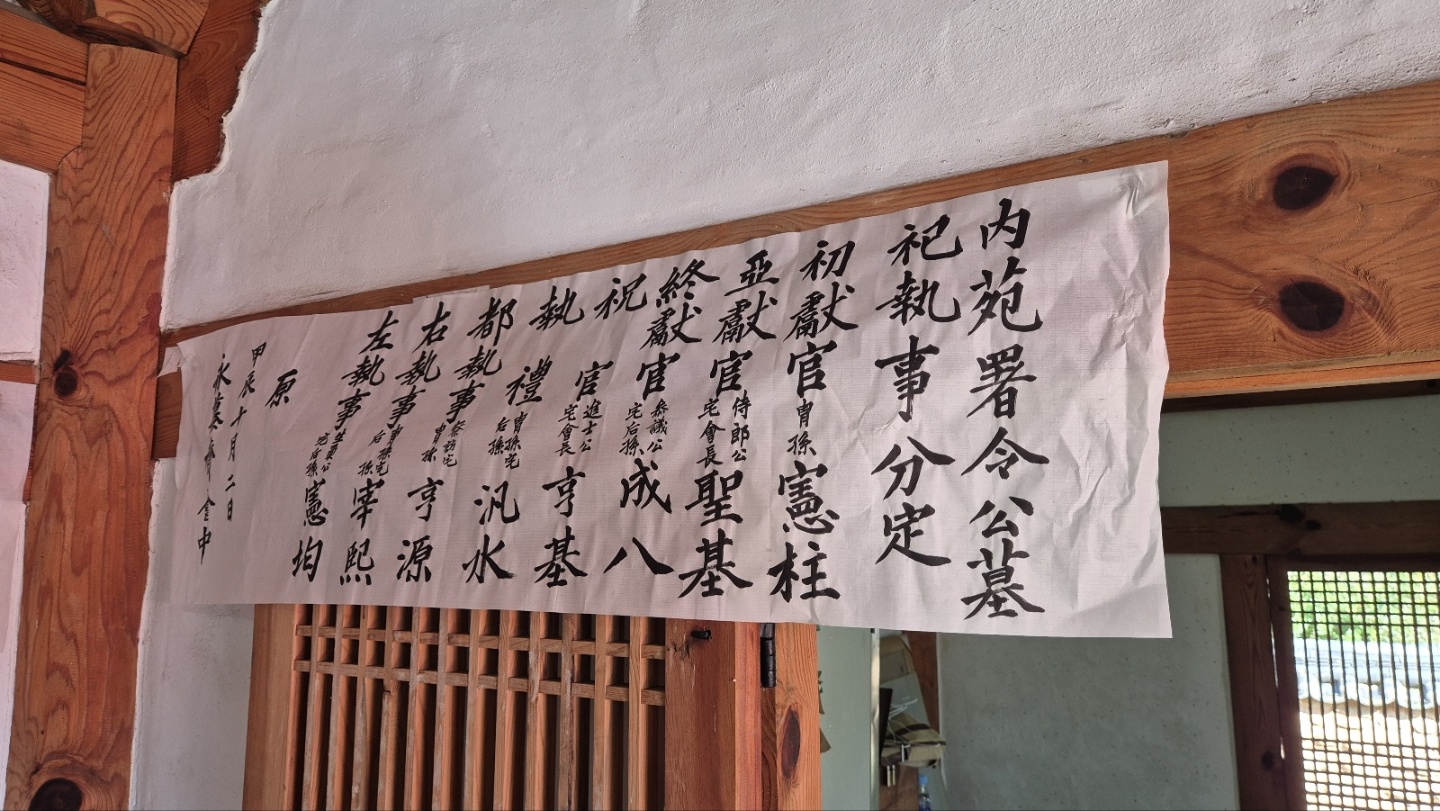 内苑署令公墓
祀執事分定
初獻官 胄孫 憲柱
亞獻官 侍郎公宅會長 聖基
終獻官 參議公宅后孫 成八
祝官 進士公宅會長 亨基
執禮 胄孫宅后孫 汎水
都執事 胄孫 亨源
右執事 胄孫宅后孫 宰熙
左執事 公宅后孫 憲均
原
甲辰十月二日
永慕齋會中